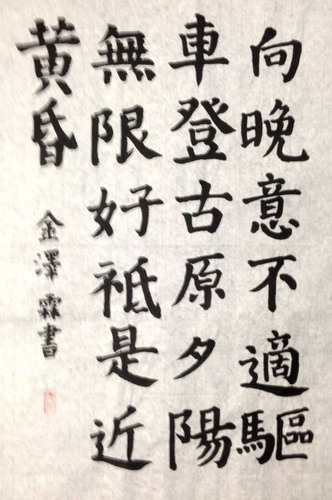 向晚意不適驅
車登古原夕陽
無限好祗是近
黄昏
金澤霖書